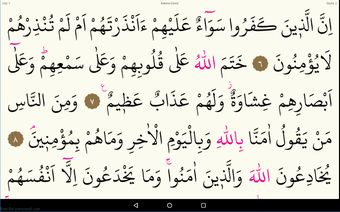 اِنَّ الَّذ۪ينَ كَفَرُوا سَوَٓاءٌ عَلَيْهِمْ ءَاَنْذَرْتَهُمْ اَمْ لَمْ تُنْذِرْهُمْ
لَا يُؤْمِنُونَ ﴿٦﴾ خَتَمَ اللّٰهُ عَلٰى قُلُوبِهِمْ وَعَلٰى سَمْعِهِمْۜ وَعَلٰٓى
اَبْصَارِهِمْ غِشَاوَةٌۘ وَلَهُمْ عَذَابٌ عَظ۪يمٌ۟ ﴿٧﴾ وَمِنَ النَّاسِ
مَنْ يَقُولُ اٰمَنَّا بِاللّٰهِ وَبِالْيَوْمِ الْاٰخِرِ وَمَا هُمْ بِمُؤْمِن۪ينَۢ ﴿٨﴾
يُخَادِعُونَ اللّٰهَ وَالَّذ۪ينَ اٰمَنُواۚ وَمَا يَخْدَعُونَ اِلَّٓا اَنْفُسَهُمْ